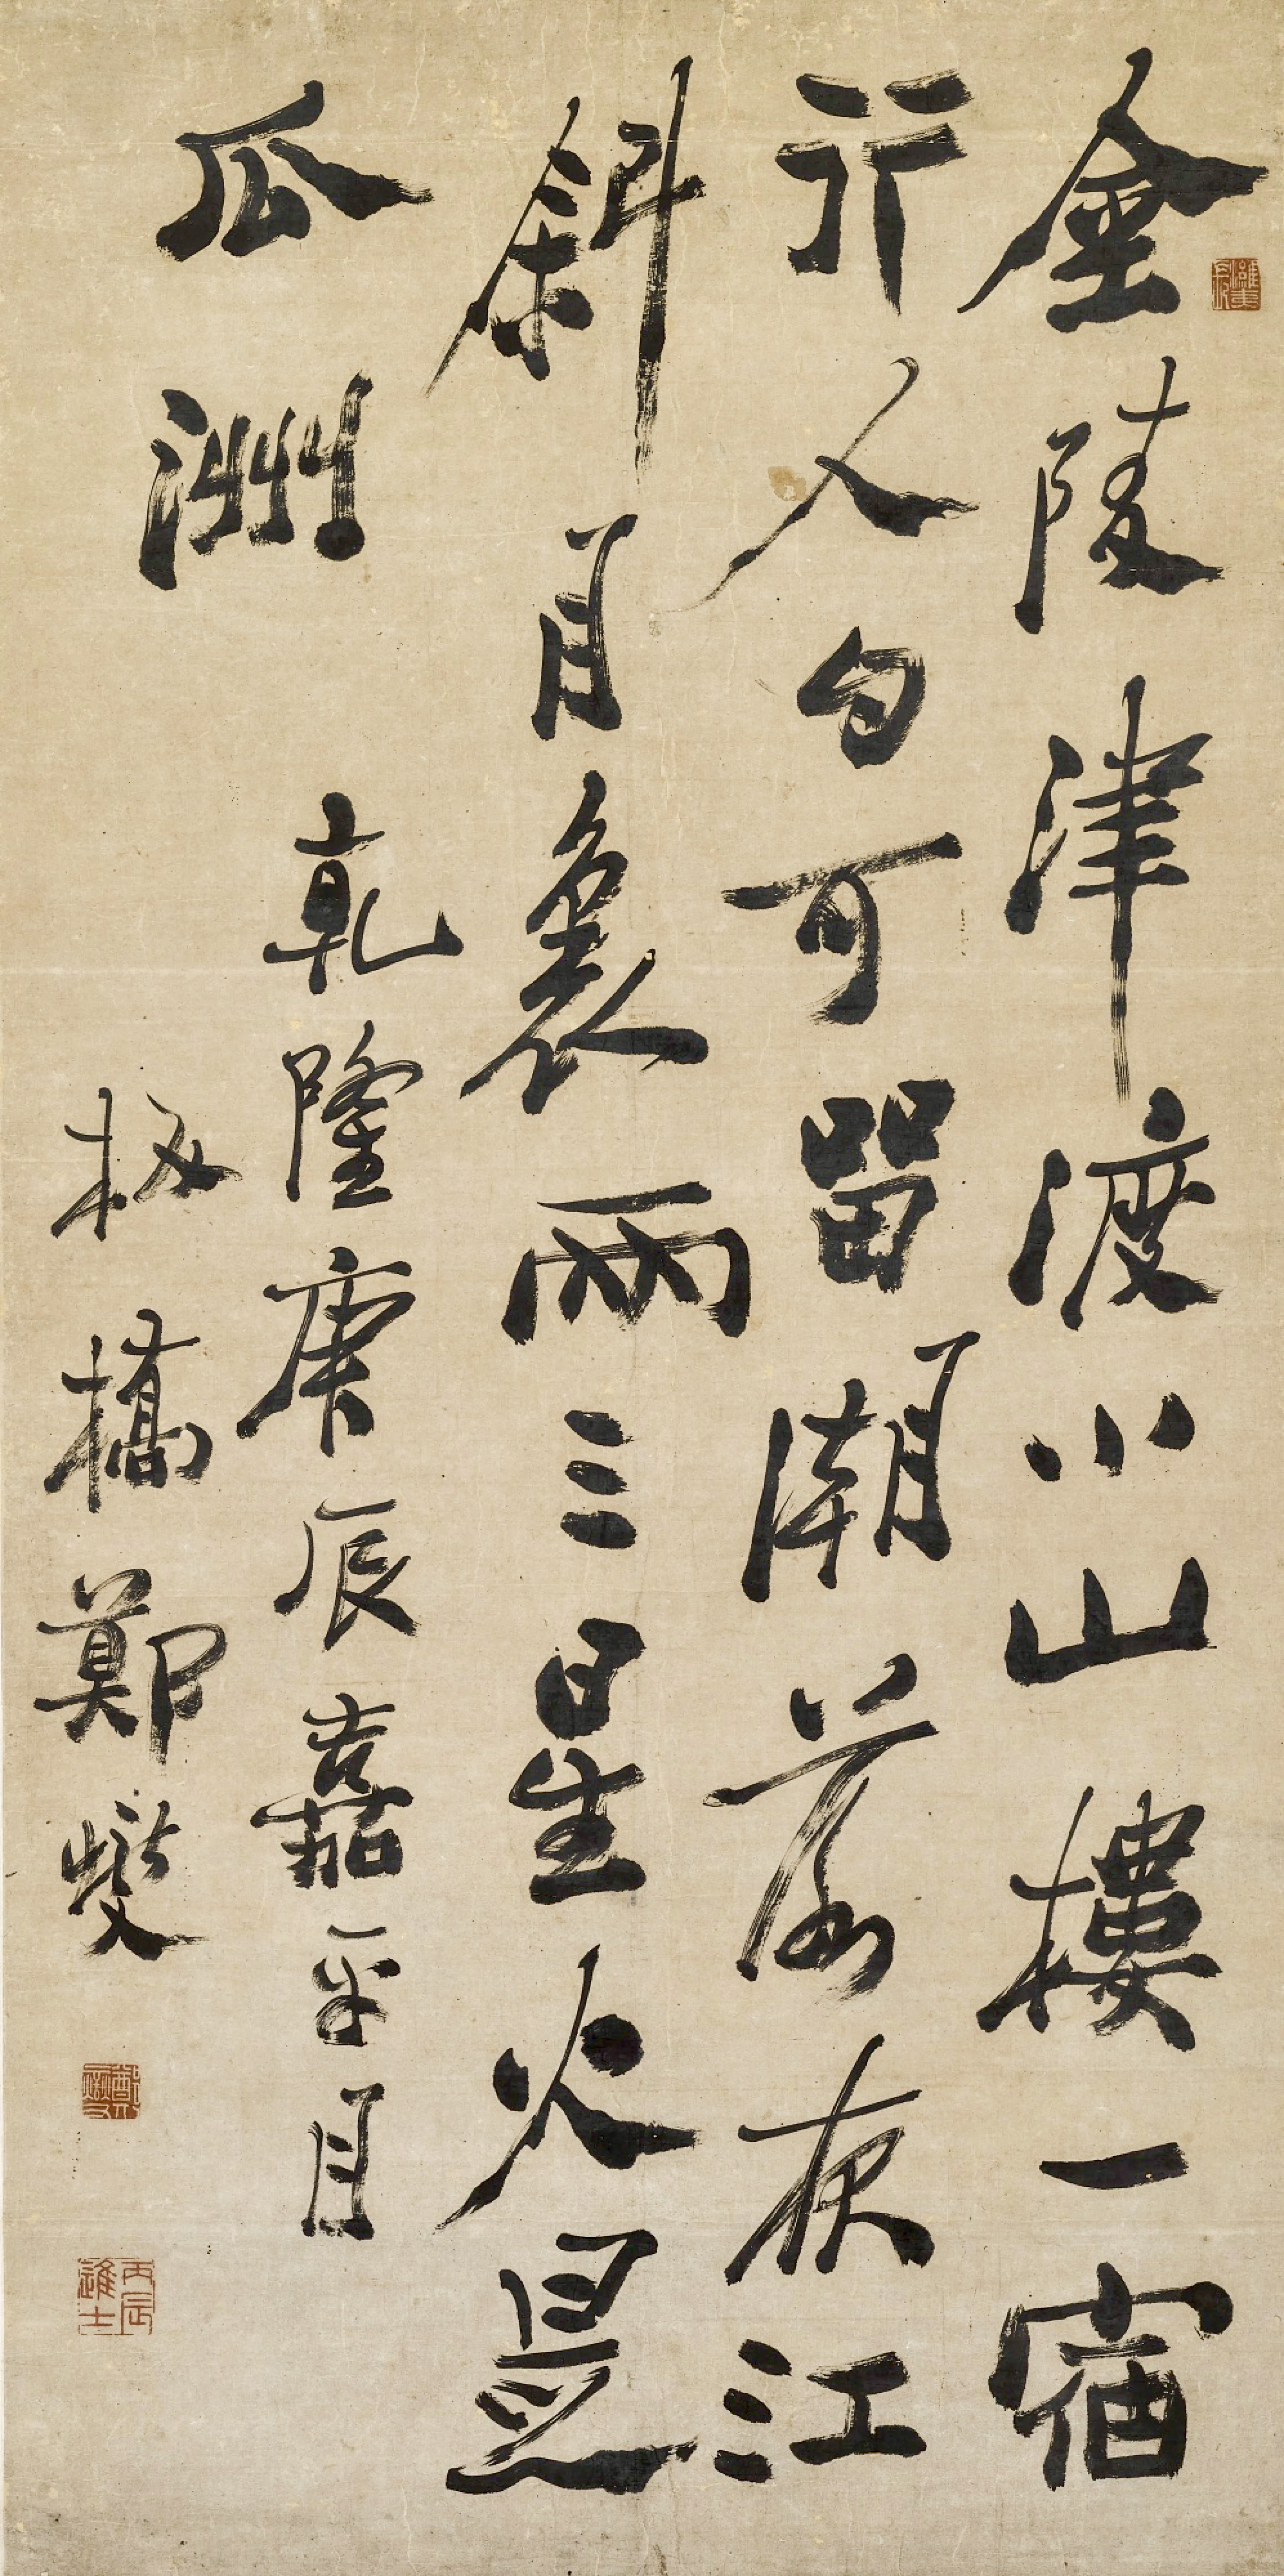 濰夷長
金陵津渡小山樓一宿
行人自可留潮落夜江
斜月裏兩三星火是
瓜洲
乾隆庚辰嘉平月
板橋鄭燮
丙辰進士